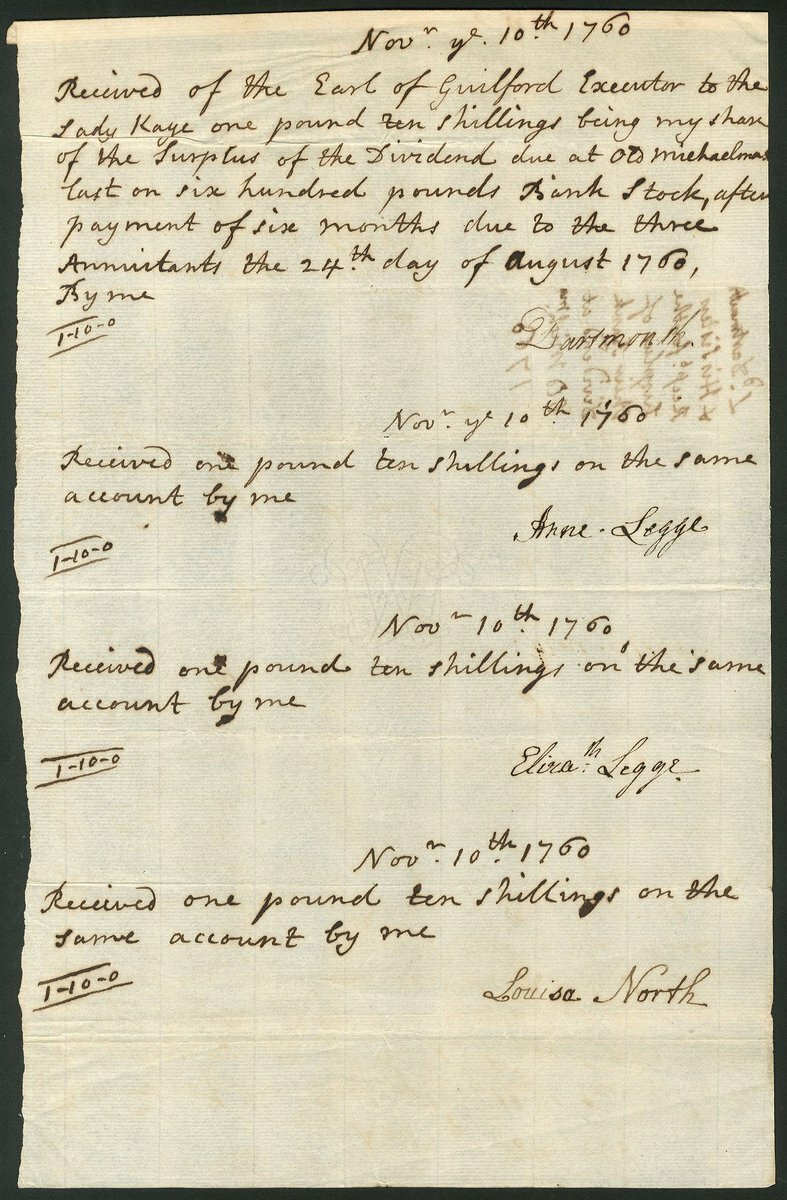 Novr. ye. 10th 1760
Received of the Earl of Guilford Executor to the
Lady Kaye one pound ten shillings being my share
of the Surplus of the Dividend due at Old Michaelmas
last on six hundred pounds Bank Stock, after
payment of six months due to the three
Annuitants the 24th. day of August 1760,
By me
1-10-0
Dartmouth.
Novr. ye 10th 1760
Received one pound ten shillings on the same
account by me
Anne. Legge
1-10-0
Novr 10th. 1760
Received one pound ten shillings on the same
account by me
1-10-0
Elizath. Legge.
Novr. 10th. 1760
Received one pound ten shillings on the
same account by me
1-10-0
Louisa North